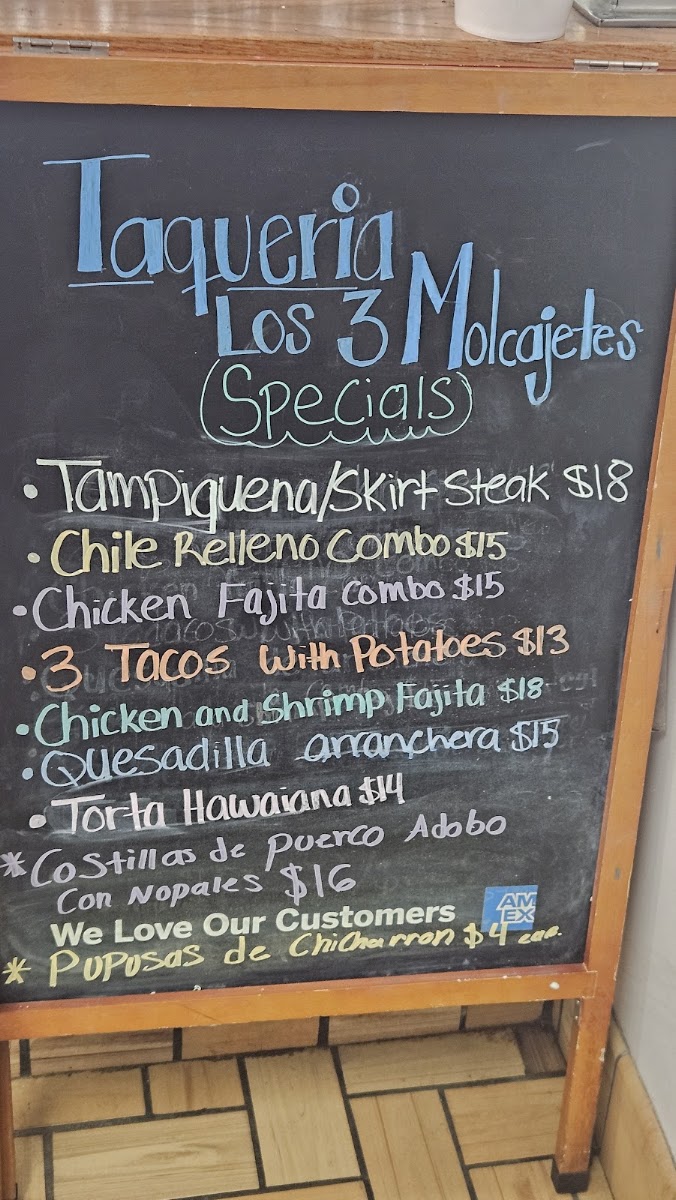 Taqueria
Los 3 Molcajetes
(Specials)
• Tampiquena/Skirt Steak $18
• Chile Relleno Combo $15
• Chicken Fajita Combo $15
• 3 Tacos with Potatoes $13
• Chicken and Shrimp Fajita $18
• Quesadilla arranchera $15
• Torta Hawaiana $14
* Costillas de puerco Adobo
Con Nopales $16
We Love Our Customers
AM
EX
* Pupusas de Chicharron $4